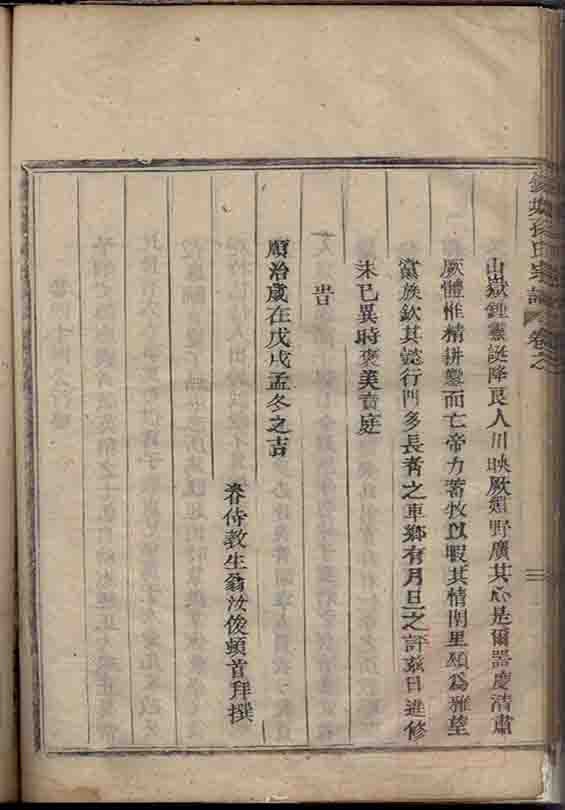 山嶽鍾靈誕降良人川映厥嬉野廣其心是爾器度清肅
厥體惟精耕鑿而亡帝力蓄牧以暇其情閭里願為雅望
黨族欽其懿行門多長者之車鄉有月旦之評茲日進修
未已異時褒美賁庭
旹
順治歲在戊戌孟冬之吉
眷侍教生翁汝俊頓首拜撰
氏宗譜
卷之